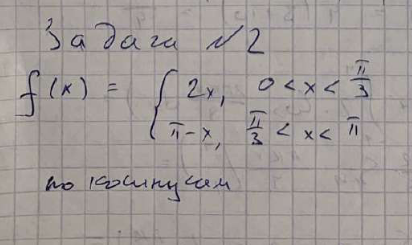 Задача №2
f(x) = { 2x, 0 < x < π/3
π-x, π/3 < x < π
по косинусам